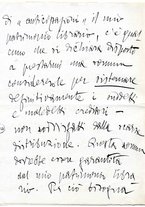 di "anticipazioni" il mio
patrimonio librario, c'è qual
cuno che si dichiara disposto
a prestarmi una somma
considerevole per sistemare
definitivamente i suddetti
e maledetti creditori -
non soddisfatti dalla scarsa
distribuzione. Questa somma
dovrebbe essere garantita
dal mio patrimonio libra
rio. Per ciò bisogna